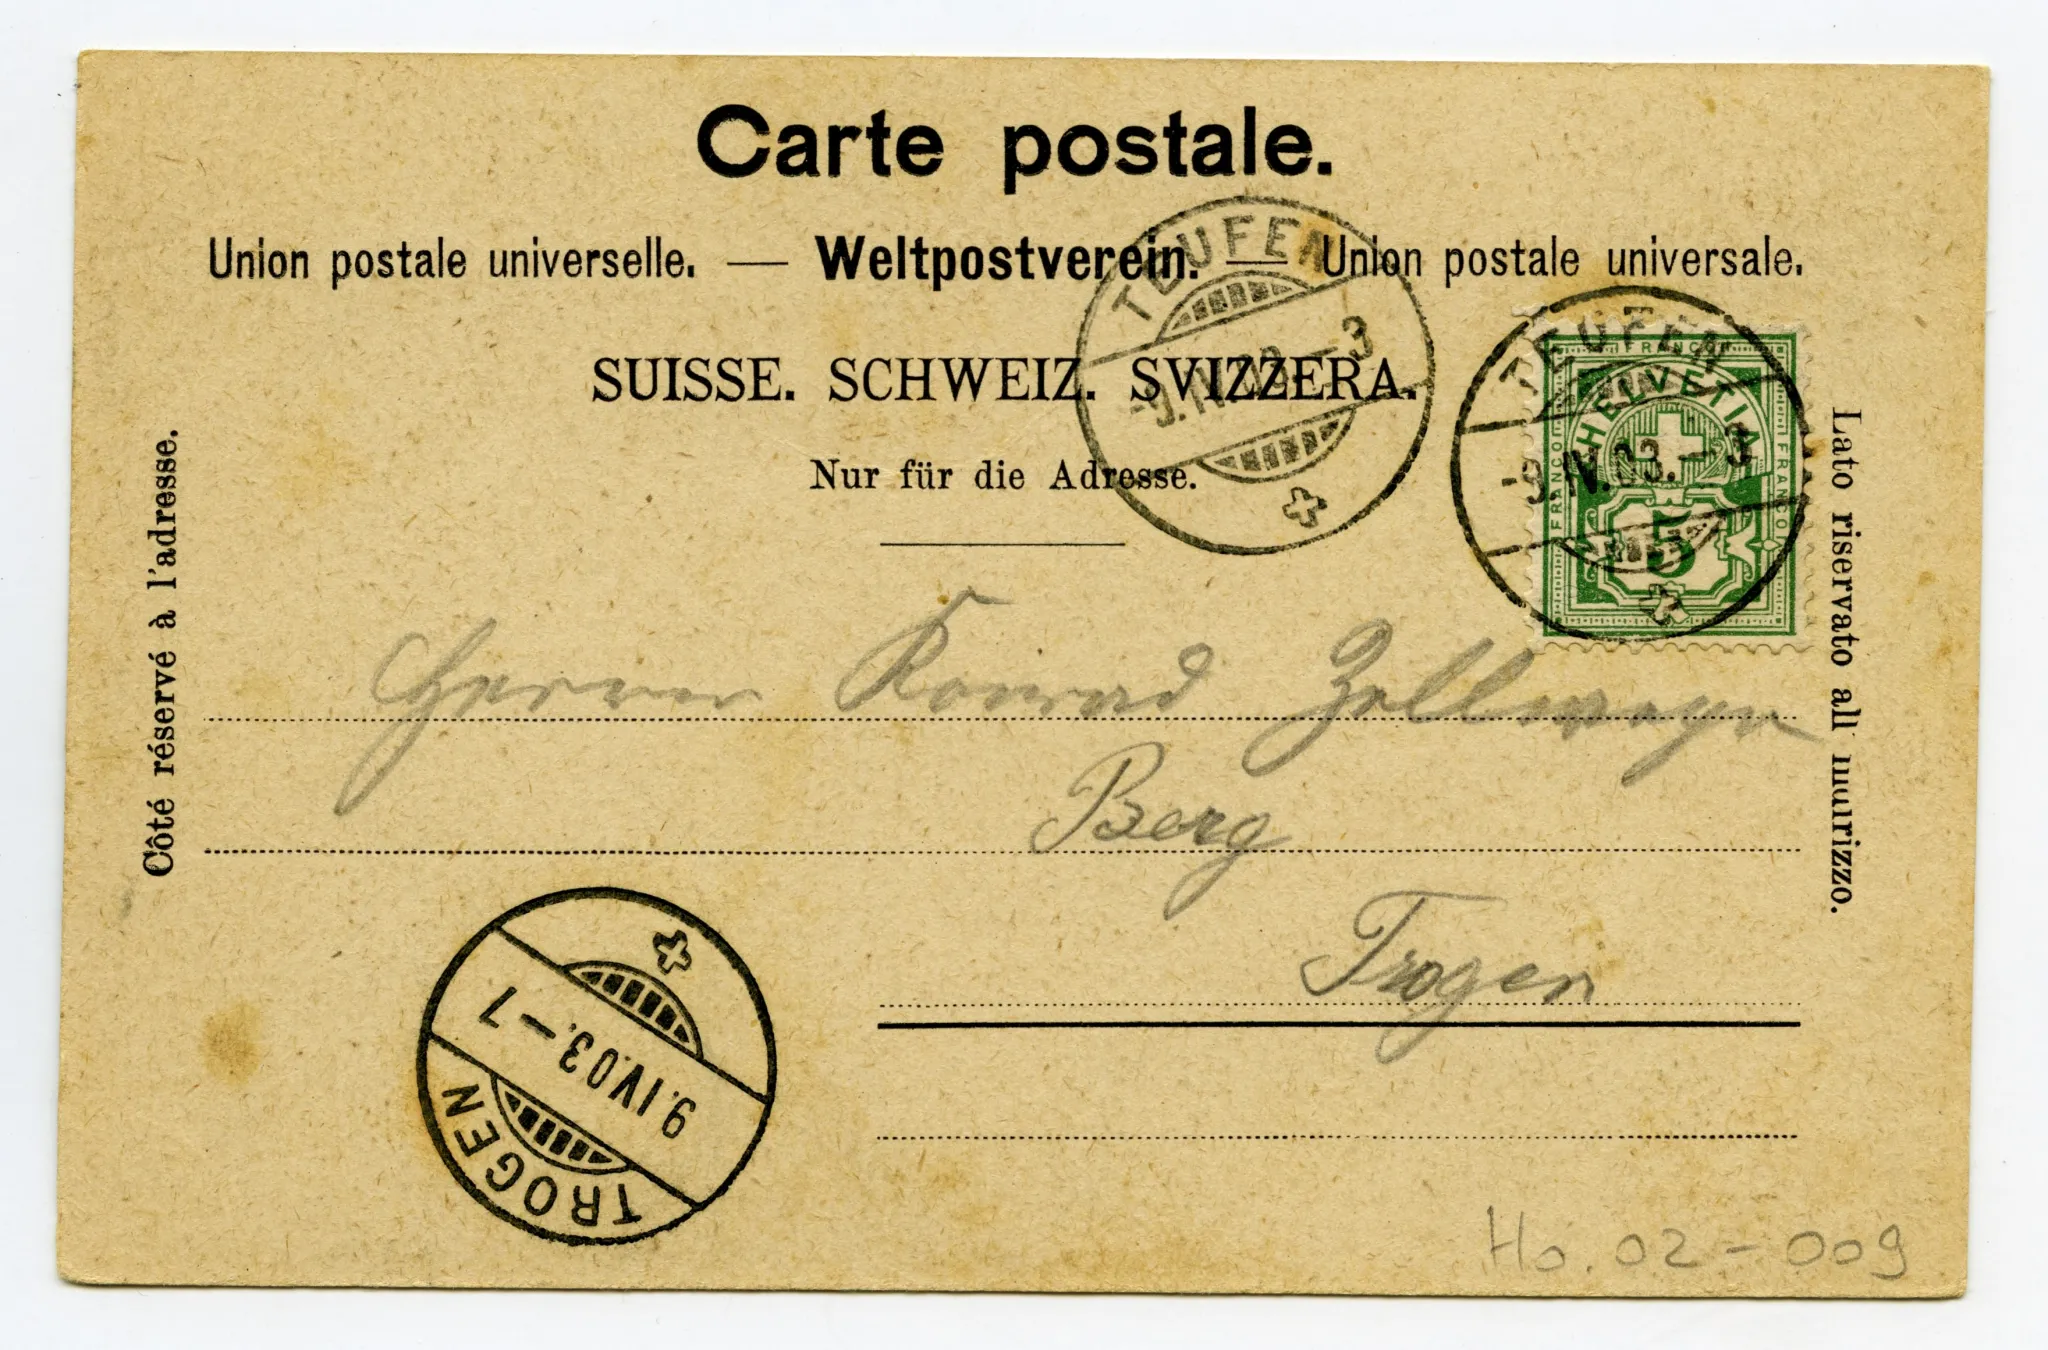 Carte postale.
Union postale universelle. — Weltpostverein. — Union postale universale.
SUISSE. SCHWEIZ. SVIZZERA.
Nur für die Adresse.
Côté réservé à l'adresse.
Lato riservato all indirizzo.
TEUFEN
-9.IV.03.-3
TEUFEN
-9.IV.03.-3
FRANCO
HELVETIA
FRANCO
FRANCO
5
Herrn Konrad Zellweger
Berg
Trogen
TROGEN
9.IV.03.-7
Ho. 02-009